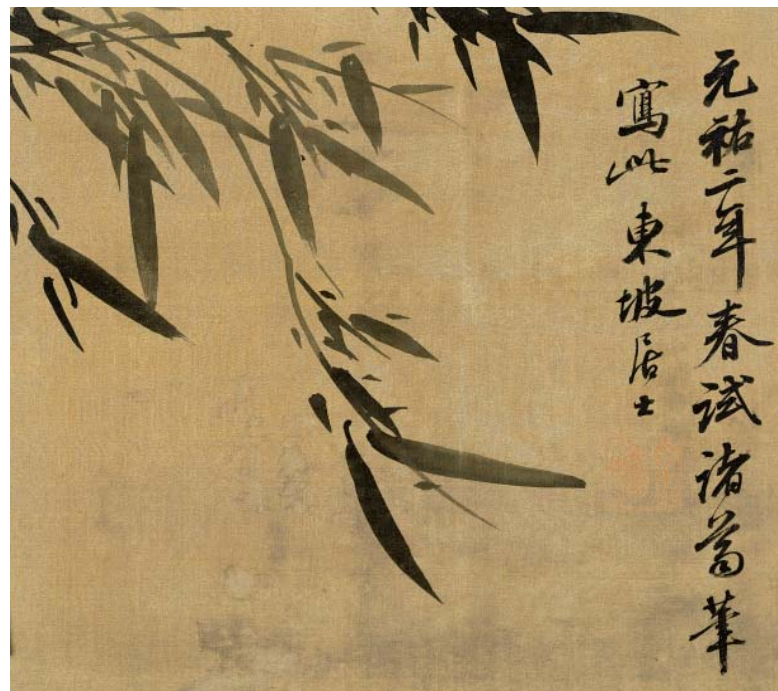 元祐二年春試諸葛筆
寫此東坡居士